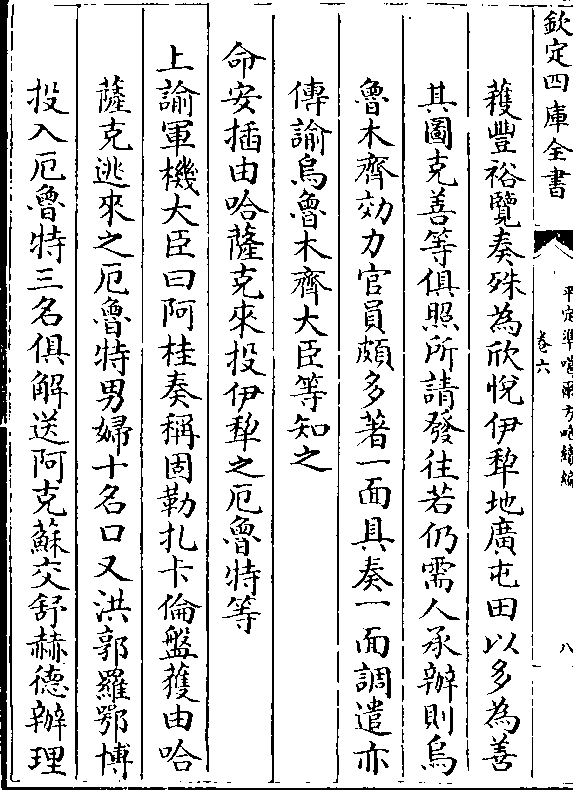 欽定四庫全書
平定準噶爾方略續編
卷六
八
穫豐裕覽奏殊為欣悅伊犂地廣屯田以多為善
其圖克善等俱照所請發往若仍需人承辦則烏
魯木齊効力官員頗多著一面具奏一面調遣亦
傳諭烏魯木齊大臣等知之
命安插由哈薩克來投伊犂之厄魯特等
上諭軍機大臣曰阿桂奏稱固勒扎卡倫盤獲由哈
薩克逃來之厄魯特男婦十名口又洪郭羅鄂博
投入厄魯特三名俱解送阿克蘇交舒赫德辦理